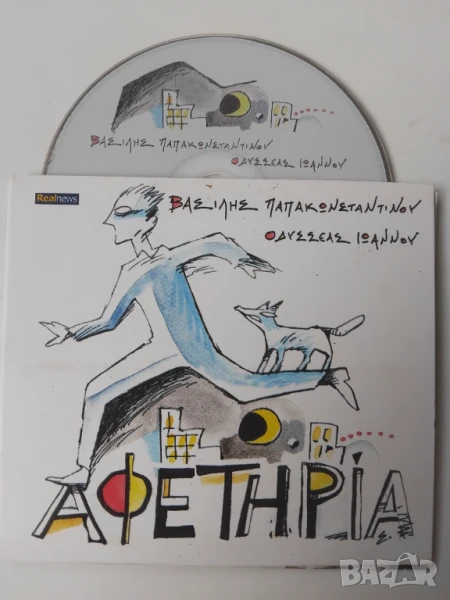 ΒΑΣΙΛΗΣ ΠΑΠΑΚΩΝΣΤΑΝΤΙΝΟΥ
ΟΔΥΣΣΕΑΣ ΙΩΑΝΝΟΥ
Realnews
ΒΑΣΙΛΗΣ ΠΑΠΑΚΩΝΣΤΑΝΤΙΝΟΥ
ΟΔΥΣΣΕΑΣ ΙΩΑΝΝΟΥ
ΑΦΕΤΗΡΊΑ
bazar.bg